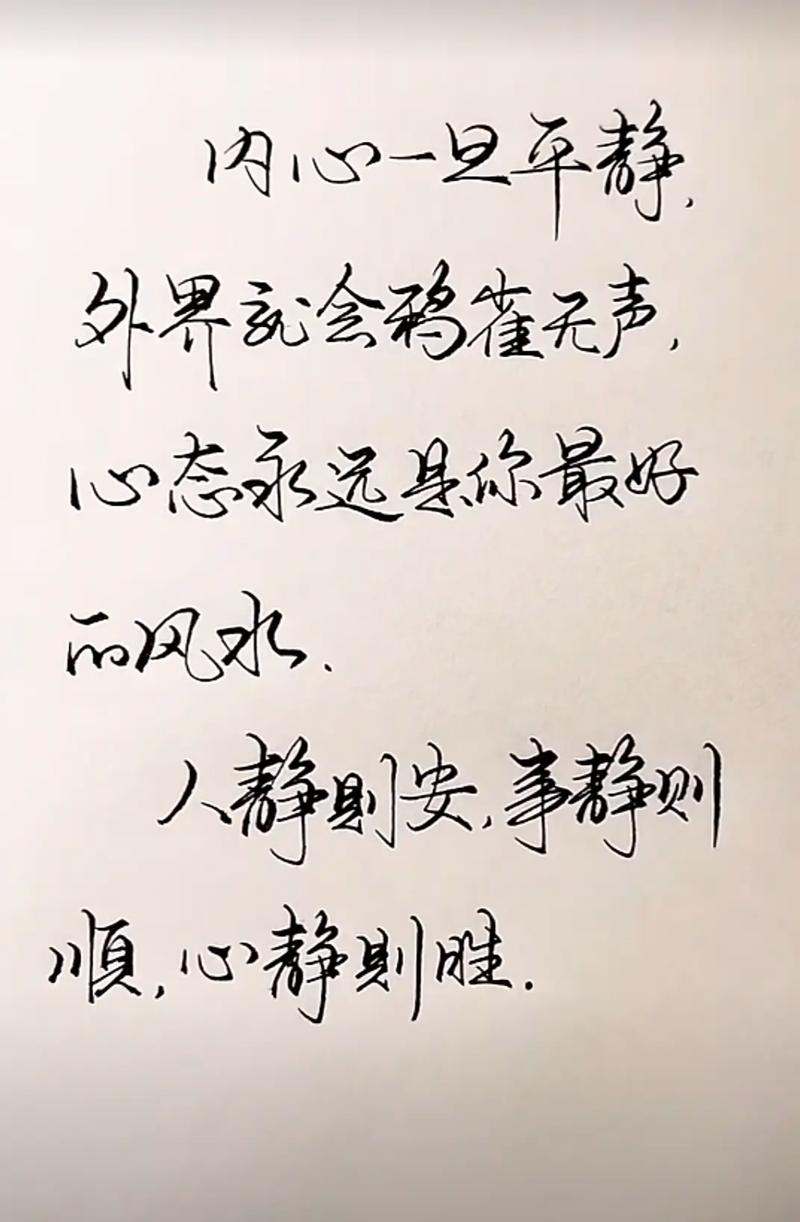 内心一旦平静,
外界就会鸦雀无声,
心态永远是你最好
的风水.
人静则安,事静则
順,心静则胜.